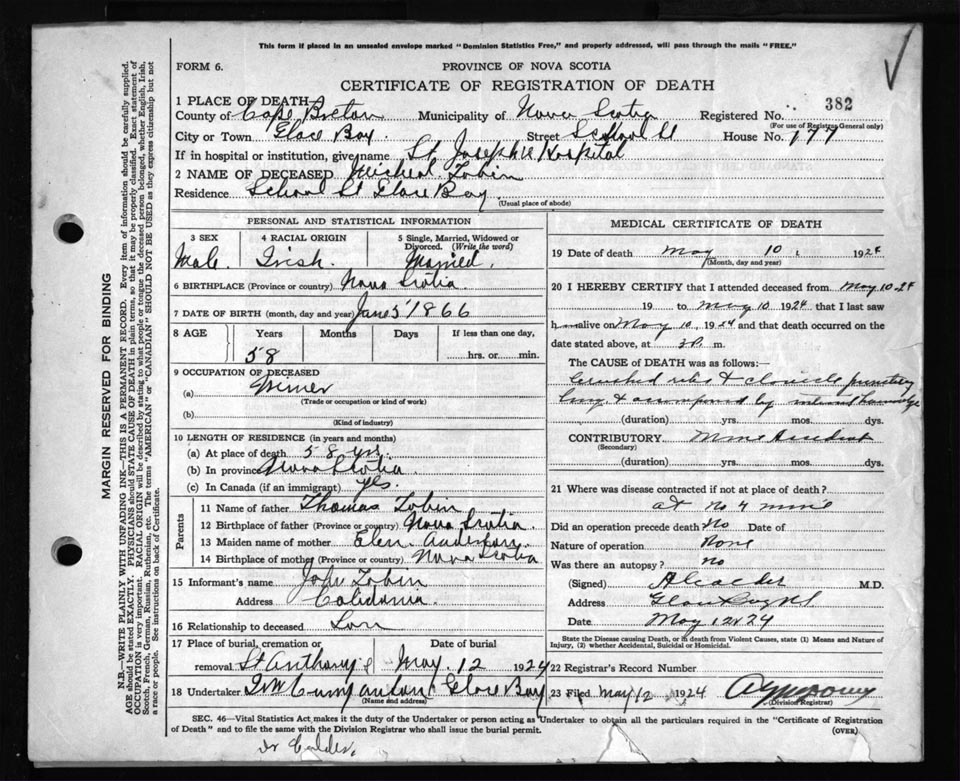 This form if placed in an unsealed envelope marked "Dominion Statistics Free," and properly addressed, will pass through the mails "FREE."
FORM 6.
PROVINCE OF NOVA SCOTIA
CERTIFICATE OF REGISTRATION OF DEATH
382
1 PLACE OF DEATH
County of Cape Breton Municipality of Nova Scotia Registered No.
(For use of Registrar General only)
City or Town Glace Bay Street School St House No. 177
If in hospital or institution, give name St Joseph's Hospital
2 NAME OF DECEASED Micheal Tobin
Residence School St Glace Bay
(Usual place of abode)
PERSONAL AND STATISTICAL INFORMATION
3 SEX 4 RACIAL ORIGIN 5 Single, Married, Widowed or Divorced. (Write the word)
Male. Irish. Married.
6 BIRTHPLACE (Province or country) Nova Scotia
7 DATE OF BIRTH (month, day and year) 5 1866
8 AGE Years Months Days If less than one day,
58 hrs. or min.
9 OCCUPATION OF DECEASED
(a) Miner
(Trade or occupation or kind of work)
(b)
(Kind of industry)
10 LENGTH OF RESIDENCE (in years and months)
(a) At place of death 58 yrs.
(b) In province Nova Scotia
(c) In Canada (if an immigrant) yes.
Parents
11 Name of father Thomas Tobin
12 Birthplace of father (Province or country) Nova Scotia.
13 Maiden name of mother Elen Anderson.
14 Birthplace of mother (Province or country) Nova Scotia
15 Informant's name John Tobin
Address Calidonia.
16 Relationship to deceased Son
17 Place of burial, cremation or removal. St Anthony's Date of burial May. 12 1924
18 Undertaker Glace Bay
(Name and address)
MEDICAL CERTIFICATE OF DEATH
19 Date of death May 10 1924
(Month, day and year)
20 I HEREBY CERTIFY that I attended deceased from May 10 - 24
19 to May 10, 1924 that I last saw
h alive on May 10, 1924 and that death occurred on the
date stated above, at m.
The CAUSE OF DEATH was as follows:
Crushed ribs & clavicle
lung & by internal
(duration) yrs. mos. dys.
CONTRIBUTORY Mine Accident
(Secondary)
(duration) yrs. mos. dys.
21 Where was disease contracted if not at place of death?
at No 4 mine
Did an operation precede death No Date of
Nature of operation None
Was there an autopsy? no
(Signed) M.D.
Address Glace Bay NS
Date May 12 24
State the Disease causing Death, or in death from Violent Causes, state (1) Means and Nature of Injury, (2) whether Accidental, Suicidal or Homicidal.
22 Registrar's Record Number
23 Filed May 12 1924
(Division Registrar)
SEC. 46—Vital Statistics Act makes it the duty of the Undertaker or person acting as Undertaker to obtain all the particulars required in the "Certificate of Registration
of Death" and to file the same with the Division Registrar who shall issue the burial permit.
(OVER)
Dr Calder.
MARGIN RESERVED FOR BINDING
N.B.—WRITE PLAINLY WITH UNFADING INK—THIS IS A PERMANENT RECORD. Every item of information should be carefully supplied.
AGE should be stated EXACTLY. PHYSICIANS should STATE CAUSE OF DEATH in plain terms, so that it may be properly classified. Exact statement of
OCCUPATION is very important. RACIAL ORIGIN will be described by stating to what people or tongue the deceased person belonged, whether English, Irish,
Scotch, French, German, Russian, Ruthenian, etc. The terms "AMERICAN" or "CANADIAN" SHOULD NOT BE USED as they express citizenship but not
a race or people. See instructions on back of Certificate.